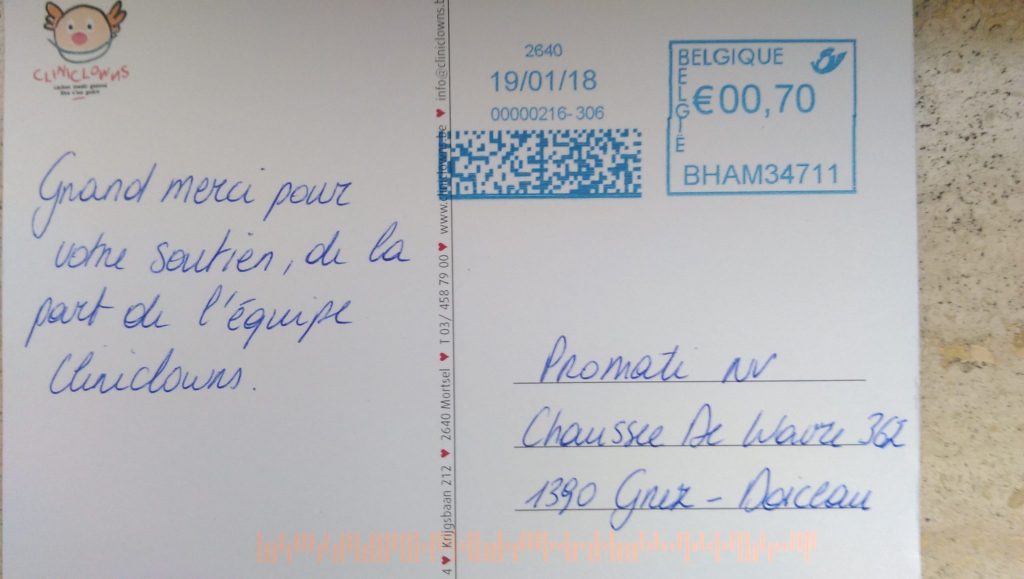 CLINICLOWNS
Grand merci pour
votre soutien, de la
part de l'équipe
Cliniclowns.
4 ♥ Krijgsbaan 212 ♥ 2640 Mortsel ♥ T 03/ 458 79 00 ♥ www.cliniclowns.be ♥ info@cliniclowns.b
2640
19/01/18
00000216-306
BELGIQUE
BELGIË
€00,70
BHAM34711
Promati NV
Chaussee De Wavre 362
1390 Grez - Doiceau